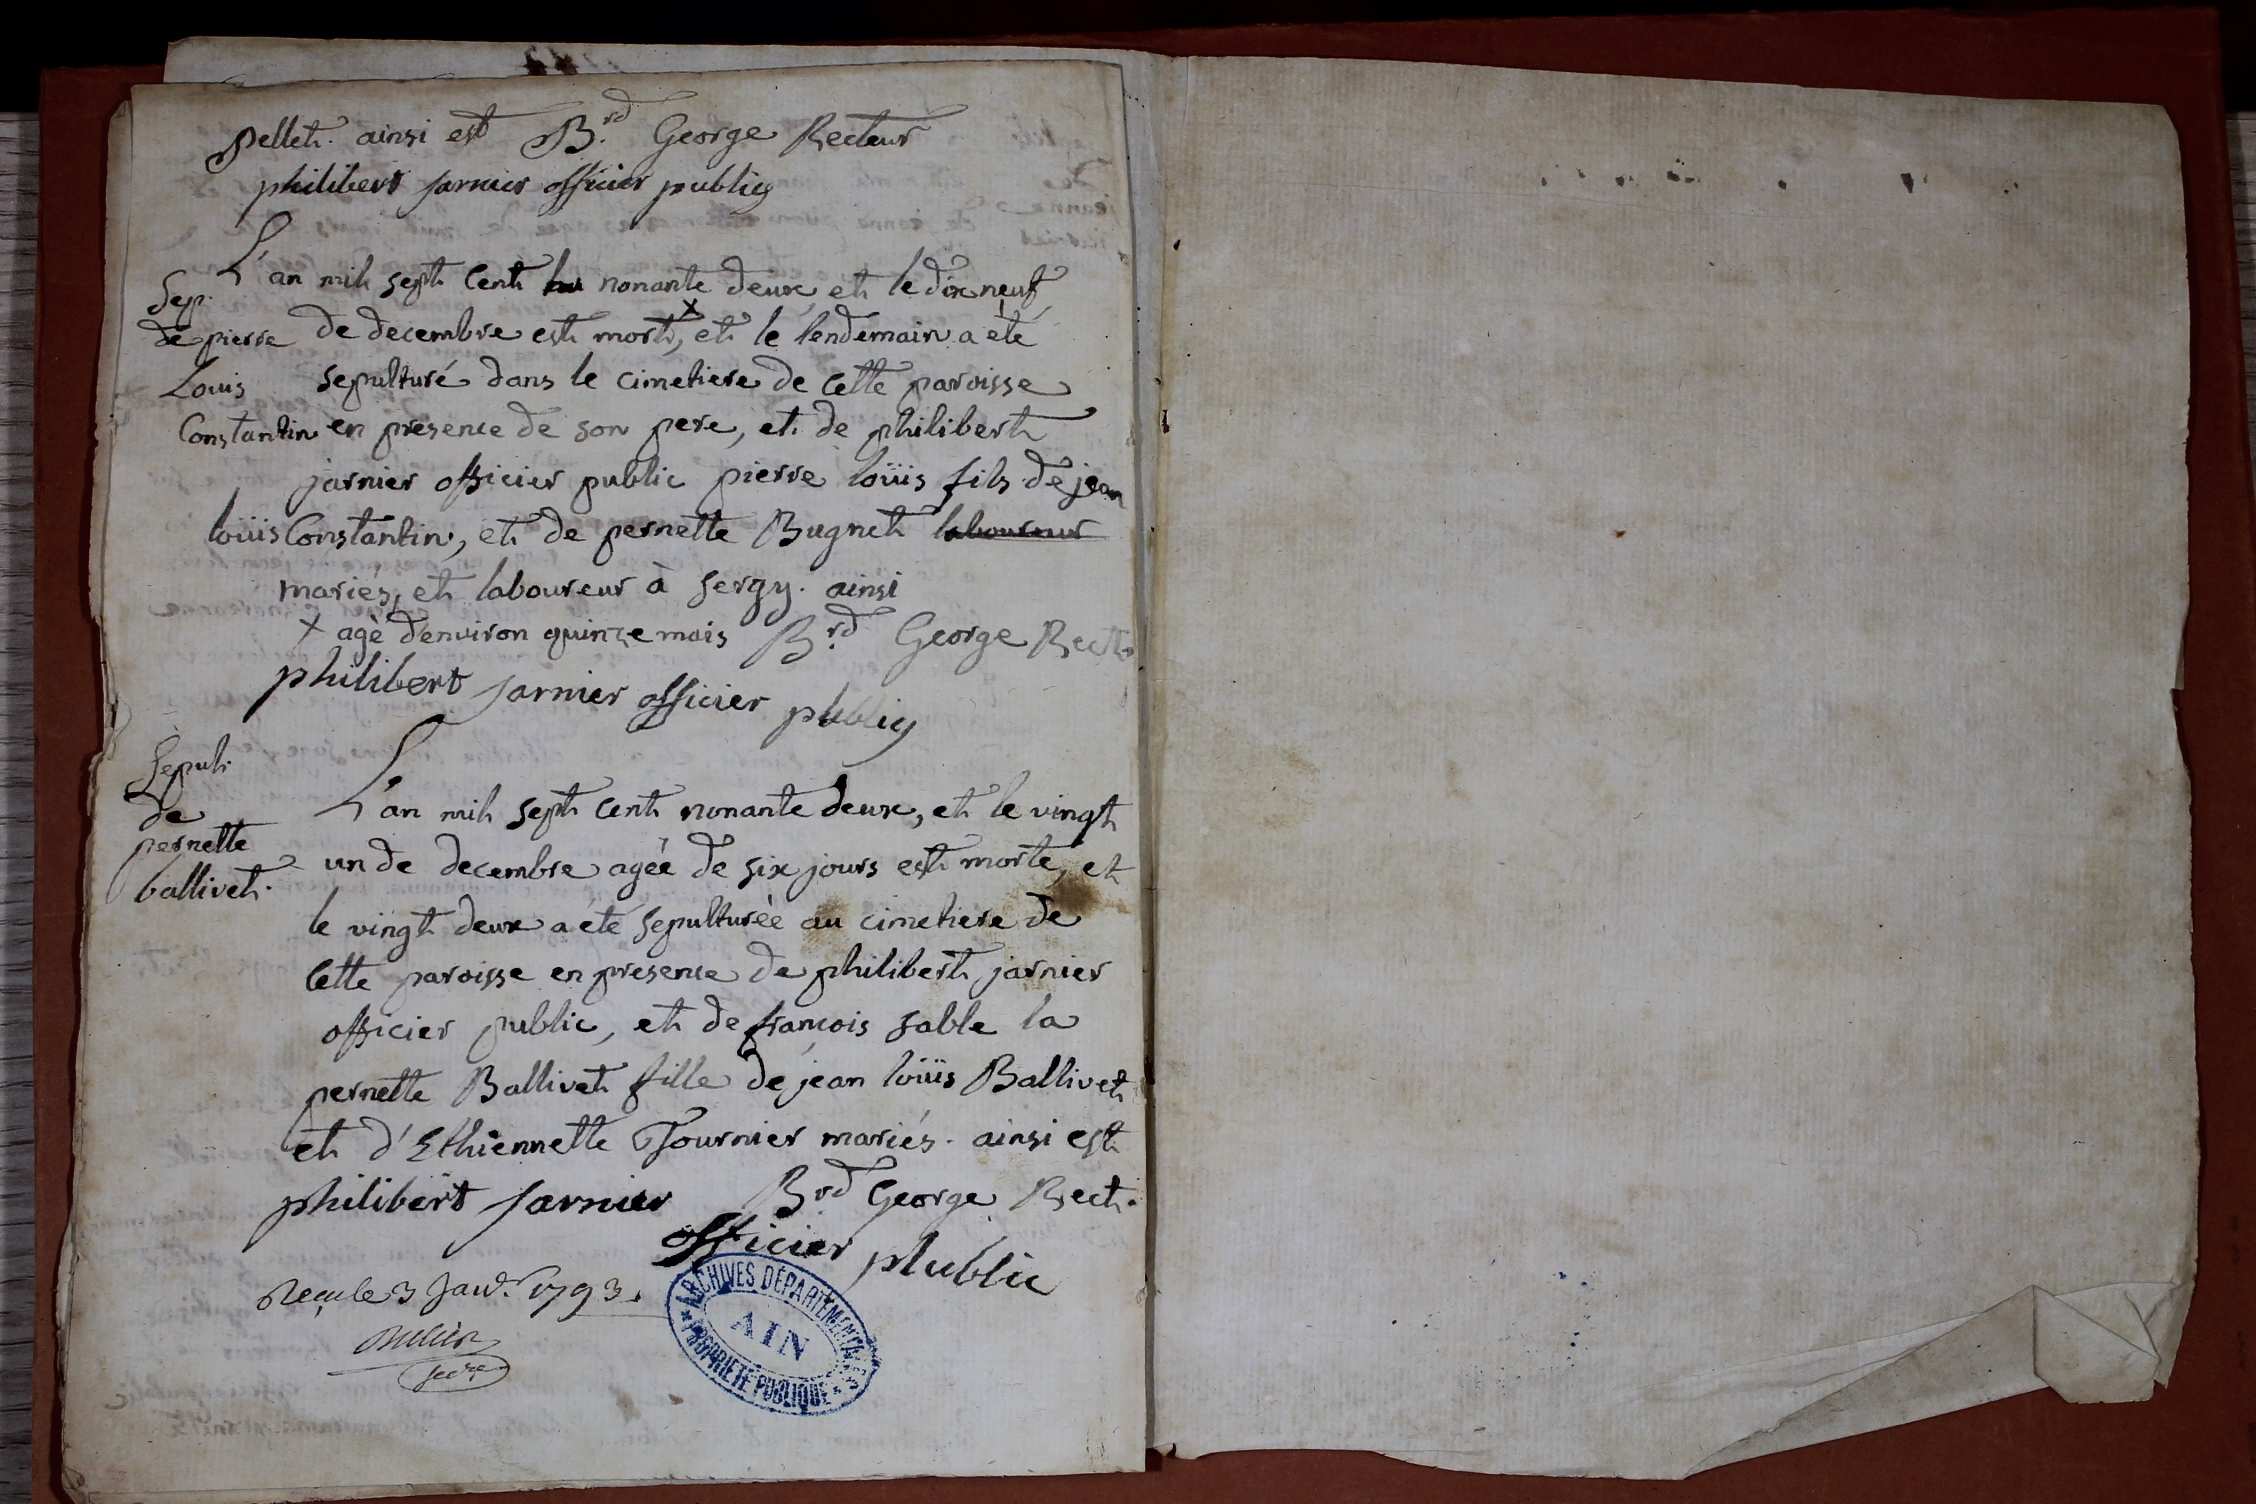 pellet. ainsi est B.rd George Recteur
philibert jarnier officier publiq
L'an mil sept cent nonante deux et le dix neuf
Sep.
de pierre
Louis
Constantin
de decembre est mort x, et le lendemain a eté
sepulturé dans le cimetiere de cette paroisse
en presence de son pere, et de philibert
jarnier officier public pierre loüis fils de jean
loüis Constantin, et de pernette Bugnet laboureur
mariés, et laboureur à sergy. ainsi
x agé d'environ quinze mois B.rd George Rect.
philibert jarnier officier plubliq
Sepult.
de
pernette
ballivet.
L'an mil sept cent nonante deux, et le vingt
un de decembre agée de six jours est morte, et
le vingt deux a eté sepulturée au cimetiere de
cette paroisse en presence de philibert jarnier
officier public, et de françois sable la
pernette Ballivet fille de jean loüis Ballivet
et d'Ethiennette Tournier mariés. ainsi est
philibert jarnier B.rd George Rect.
officier plublic
Reçu le 3 Janv. 1793.
secre
ARCHIVES DÉPARTEMENTALES
AIN
PROPRIÉTÉ PUBLIQUE